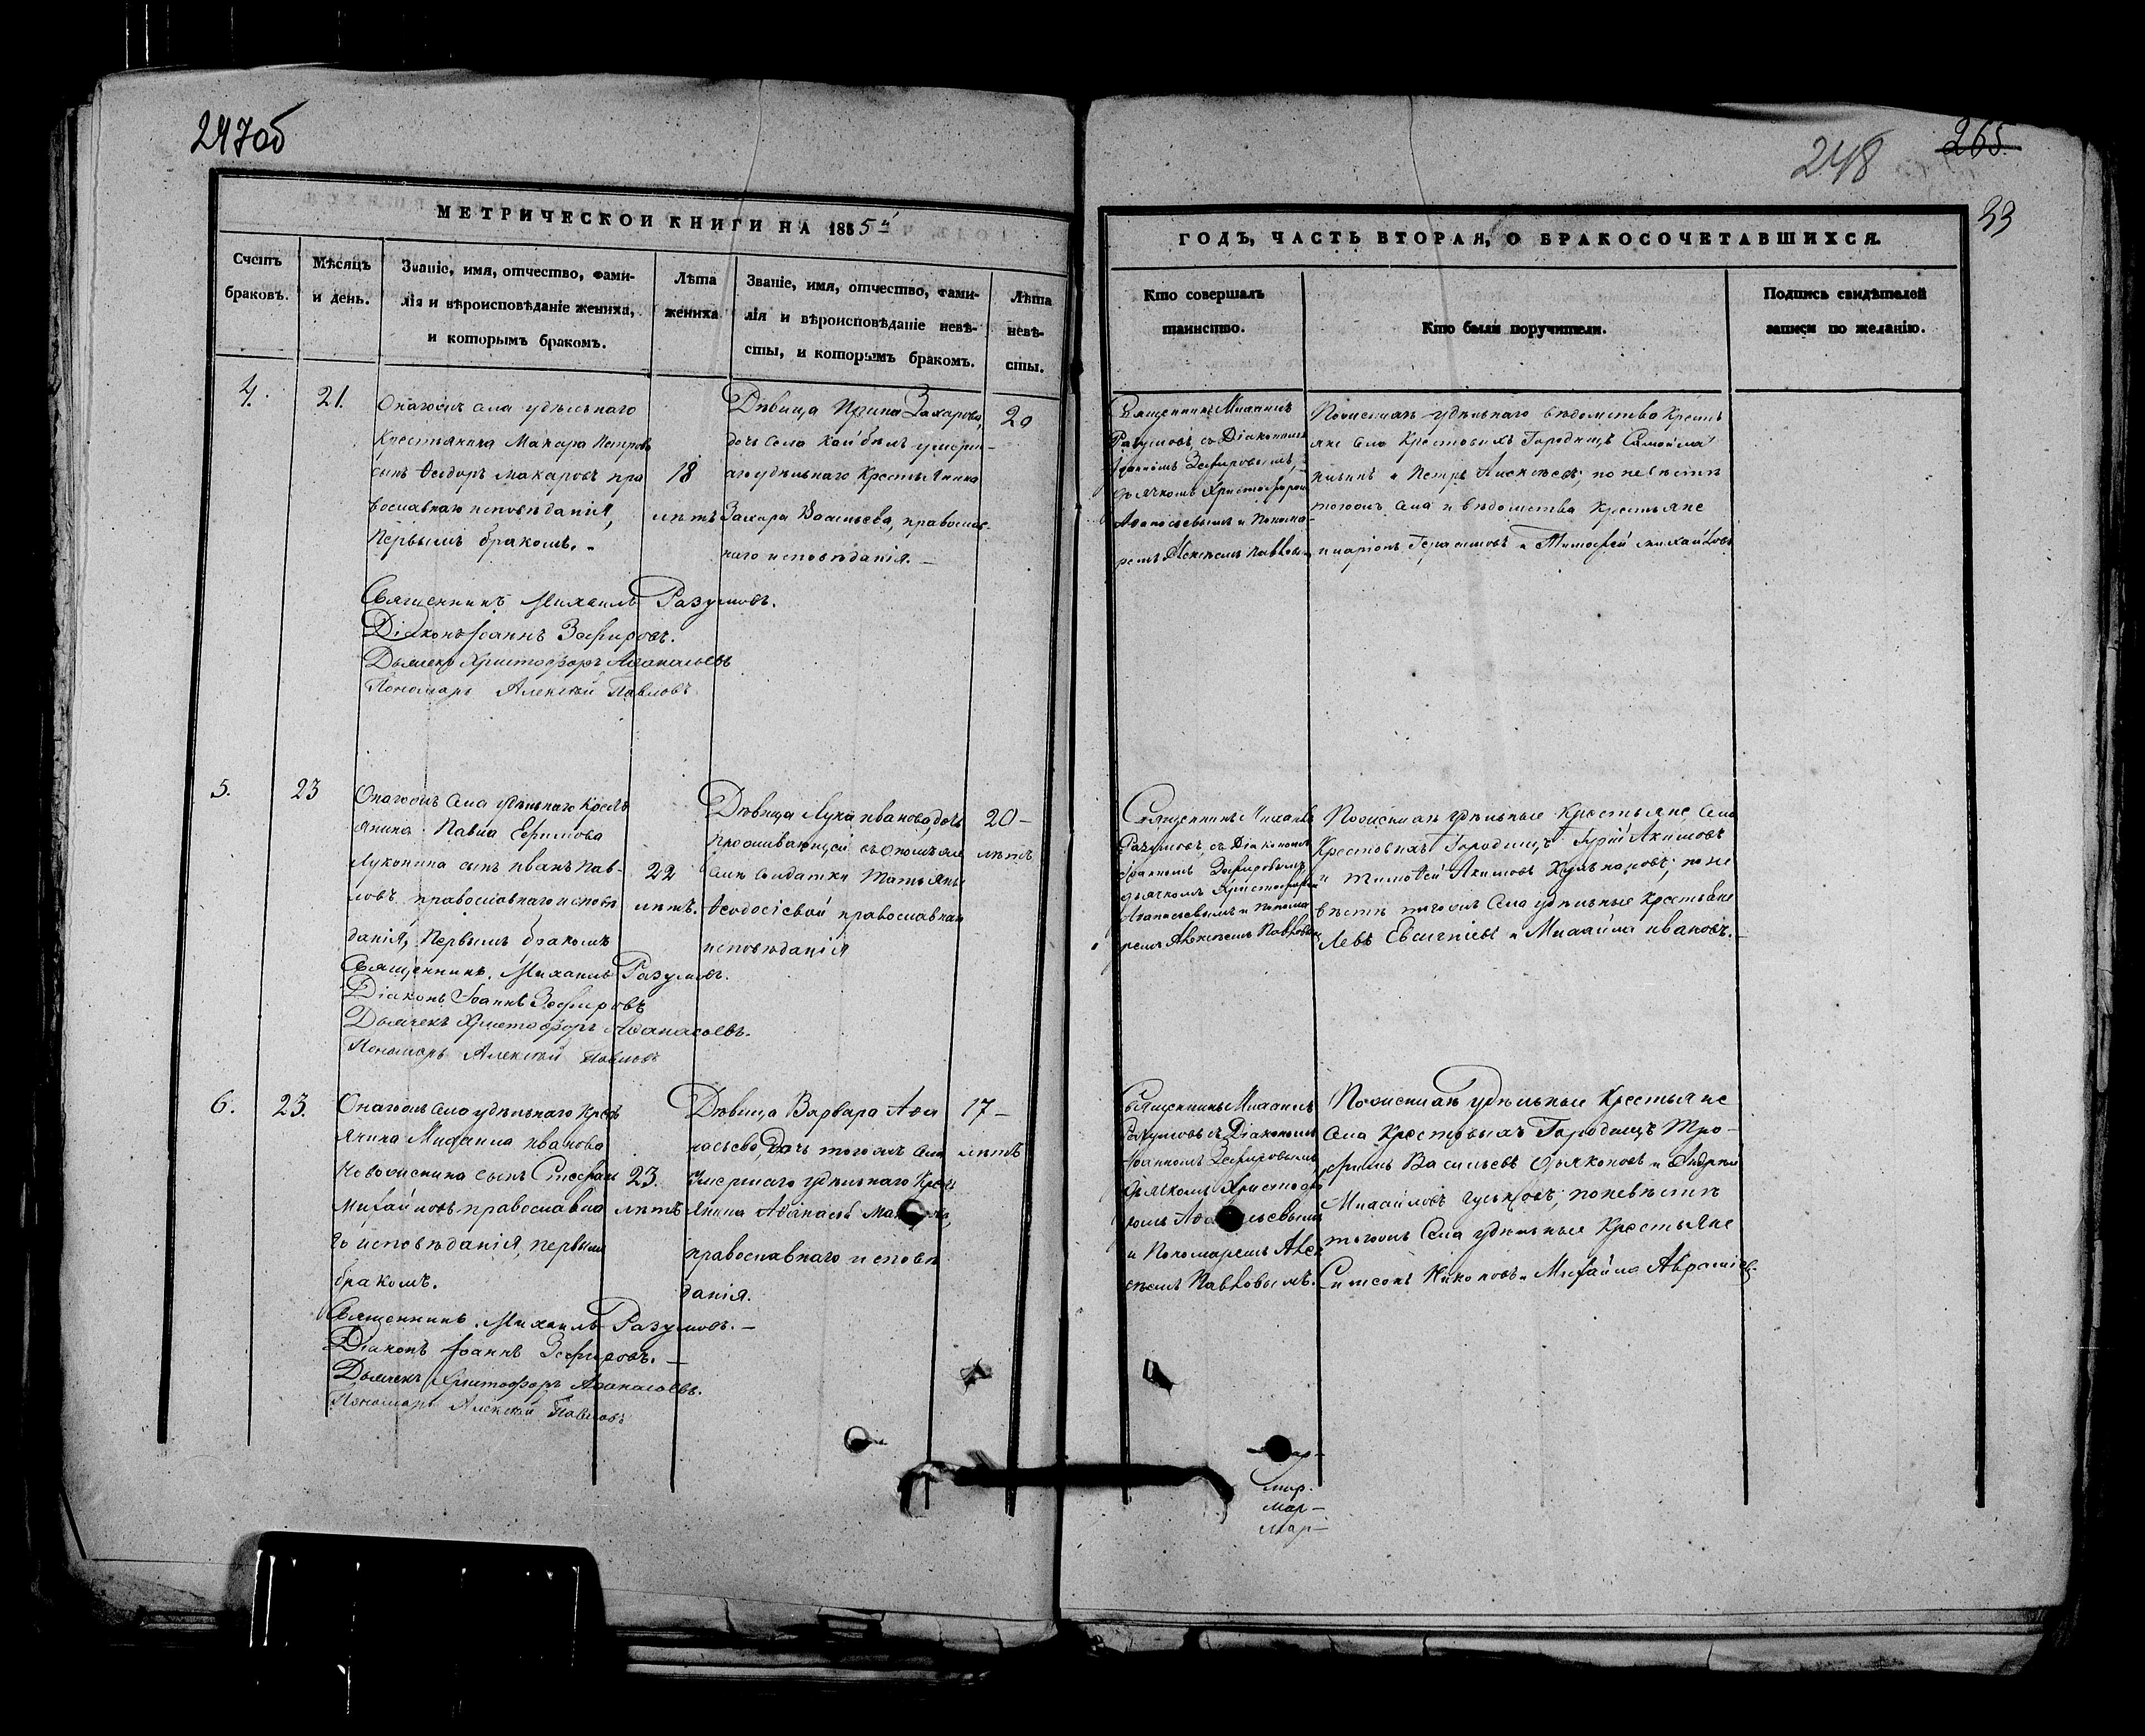 247об
МЕТРИЧЕСКОЙ КНИГИ НА 1855й
Счетъ браковъ.
Мѣсяцъ и день.
Званіе, имя, отчество, фами-
лія и вѣроисповѣданіе жениха,
и которымъ бракомъ.
Лѣта жениха
Званіе, имя, отчество, фами-
лія и вѣроисповѣданіе невѣ-
сты, и которымъ бракомъ.
Лѣта невѣ-
сты.
4.
21.
Онагожъ села удѣльнаго
крестьянина Макара Петрова
сынъ Ѳедоръ Макаровъ пра
вославнаго исповѣданія,
Первымъ бракомъ.
18
лѣтъ
Дѣвица Ирина Захарова,
дочь села умерш-
аго удѣльнаго Крестьянина
Захара Васильева, православ-
наго исповѣданія.
20
Священникъ Михаилъ Разумовъ.
Діаконъ Іоаннъ Зефировъ.
Дьячекъ Христофоръ Аѳанасьевъ
Пономарь Алексѣй Павловъ
5.
23
Онагожъ села удѣльнаго Кресть
янина Павла Ефимова
Луконина сынъ Иванъ Пав-
ловъ православнаго исповѣ
данія, Первымъ бракомъ
22
лѣтъ.
Дѣвица Иванова, дочь
проживающей въ ономъ же
селѣ солдатки Татьяны
Ѳеодосіевой православнаго
исповѣданія
20-
лѣтъ
Священникъ Михаилъ Разумовъ.
Діаконъ Іоаннъ Зефировъ
Дьячекъ Христофоръ Аѳанасьевъ.
Пономарь Алексѣй Павловъ
6.
23.
Онагожъ села удѣльнаго Кресть
янина Михаила Иванова
сынъ Стефанъ
Михайловъ православна
го исповѣданія, первымъ
бракомъ.
23.
лѣтъ
Дѣвица Варвара Аѳа
насьева, дочь тогожъ села
умершаго удѣльнаго Кресть
янина Аѳанасья
православнаго исповѣ
данія.
17-
лѣтъ
Священникъ Михаилъ Разумовъ.-
Діаконъ Іоаннъ Зефировъ.-
Дьячекъ Христофоръ Аѳанасьевъ.
Пономарь Алексѣй Павловъ
248
265
33
ГОДЪ, ЧАСТЬ ВТОРАЯ, О БРАКОСОЧЕТАВШИХСЯ.
Кто совершалъ
таинство.
Кто были поручители.
Подпись свидѣтелей
записи по желанію.
Священникъ Михаилъ
Разумовъ, съ Діакономъ
Іоанномъ Зефировымъ,
дьячкомъ Христофоромъ
Аѳанасьевымъ и Понома-
ремъ Алексѣемъ Павловымъ
По женихѣ удѣльнаго вѣдомства Кресть
яне села Крестовыхъ Городищъ Самойла
и Петръ Алексѣевъ; по невѣстѣ
тогожъ села и вѣдомства Крестьяне
Иларіонъ Герасимовъ и Тимофей Михайловъ
Священникъ Михаилъ
Разумовъ, съ Діакономъ
Іоанномъ Зефировымъ
дьячкомъ Христофоромъ
Аѳанасьевымъ и Понома
ремъ Алексѣемъ Павловымъ
По женихѣ удѣльные Крестьяне села
Крестовыхъ Городищъ Гурій Акимовъ
и Тимоѳей Акимовъ по не
вѣстѣ тогожъ села удѣльные Крестьяне
Левъ Евсигніевъ и Михайла Ивановъ.
Священникъ Михаилъ
Разумовъ съ Діакономъ
Іоанномъ Зефировымъ
Дьячкомъ Христофо
ромъ Аѳанасьевымъ
и Пономаремъ Алек
сѣемъ Павловымъ.
По женихѣ удѣльные Крестьяне
села Крестовыхъ Городищъ Тро-
фимъ Васильевъ Дьяконовъ и Андрей
Михайловъ Гуськовъ; по невѣстѣ
тогожъ села удѣльные Крестьяне
Симеонъ Никоновъ и Михайла
мар-
мар-
мар-